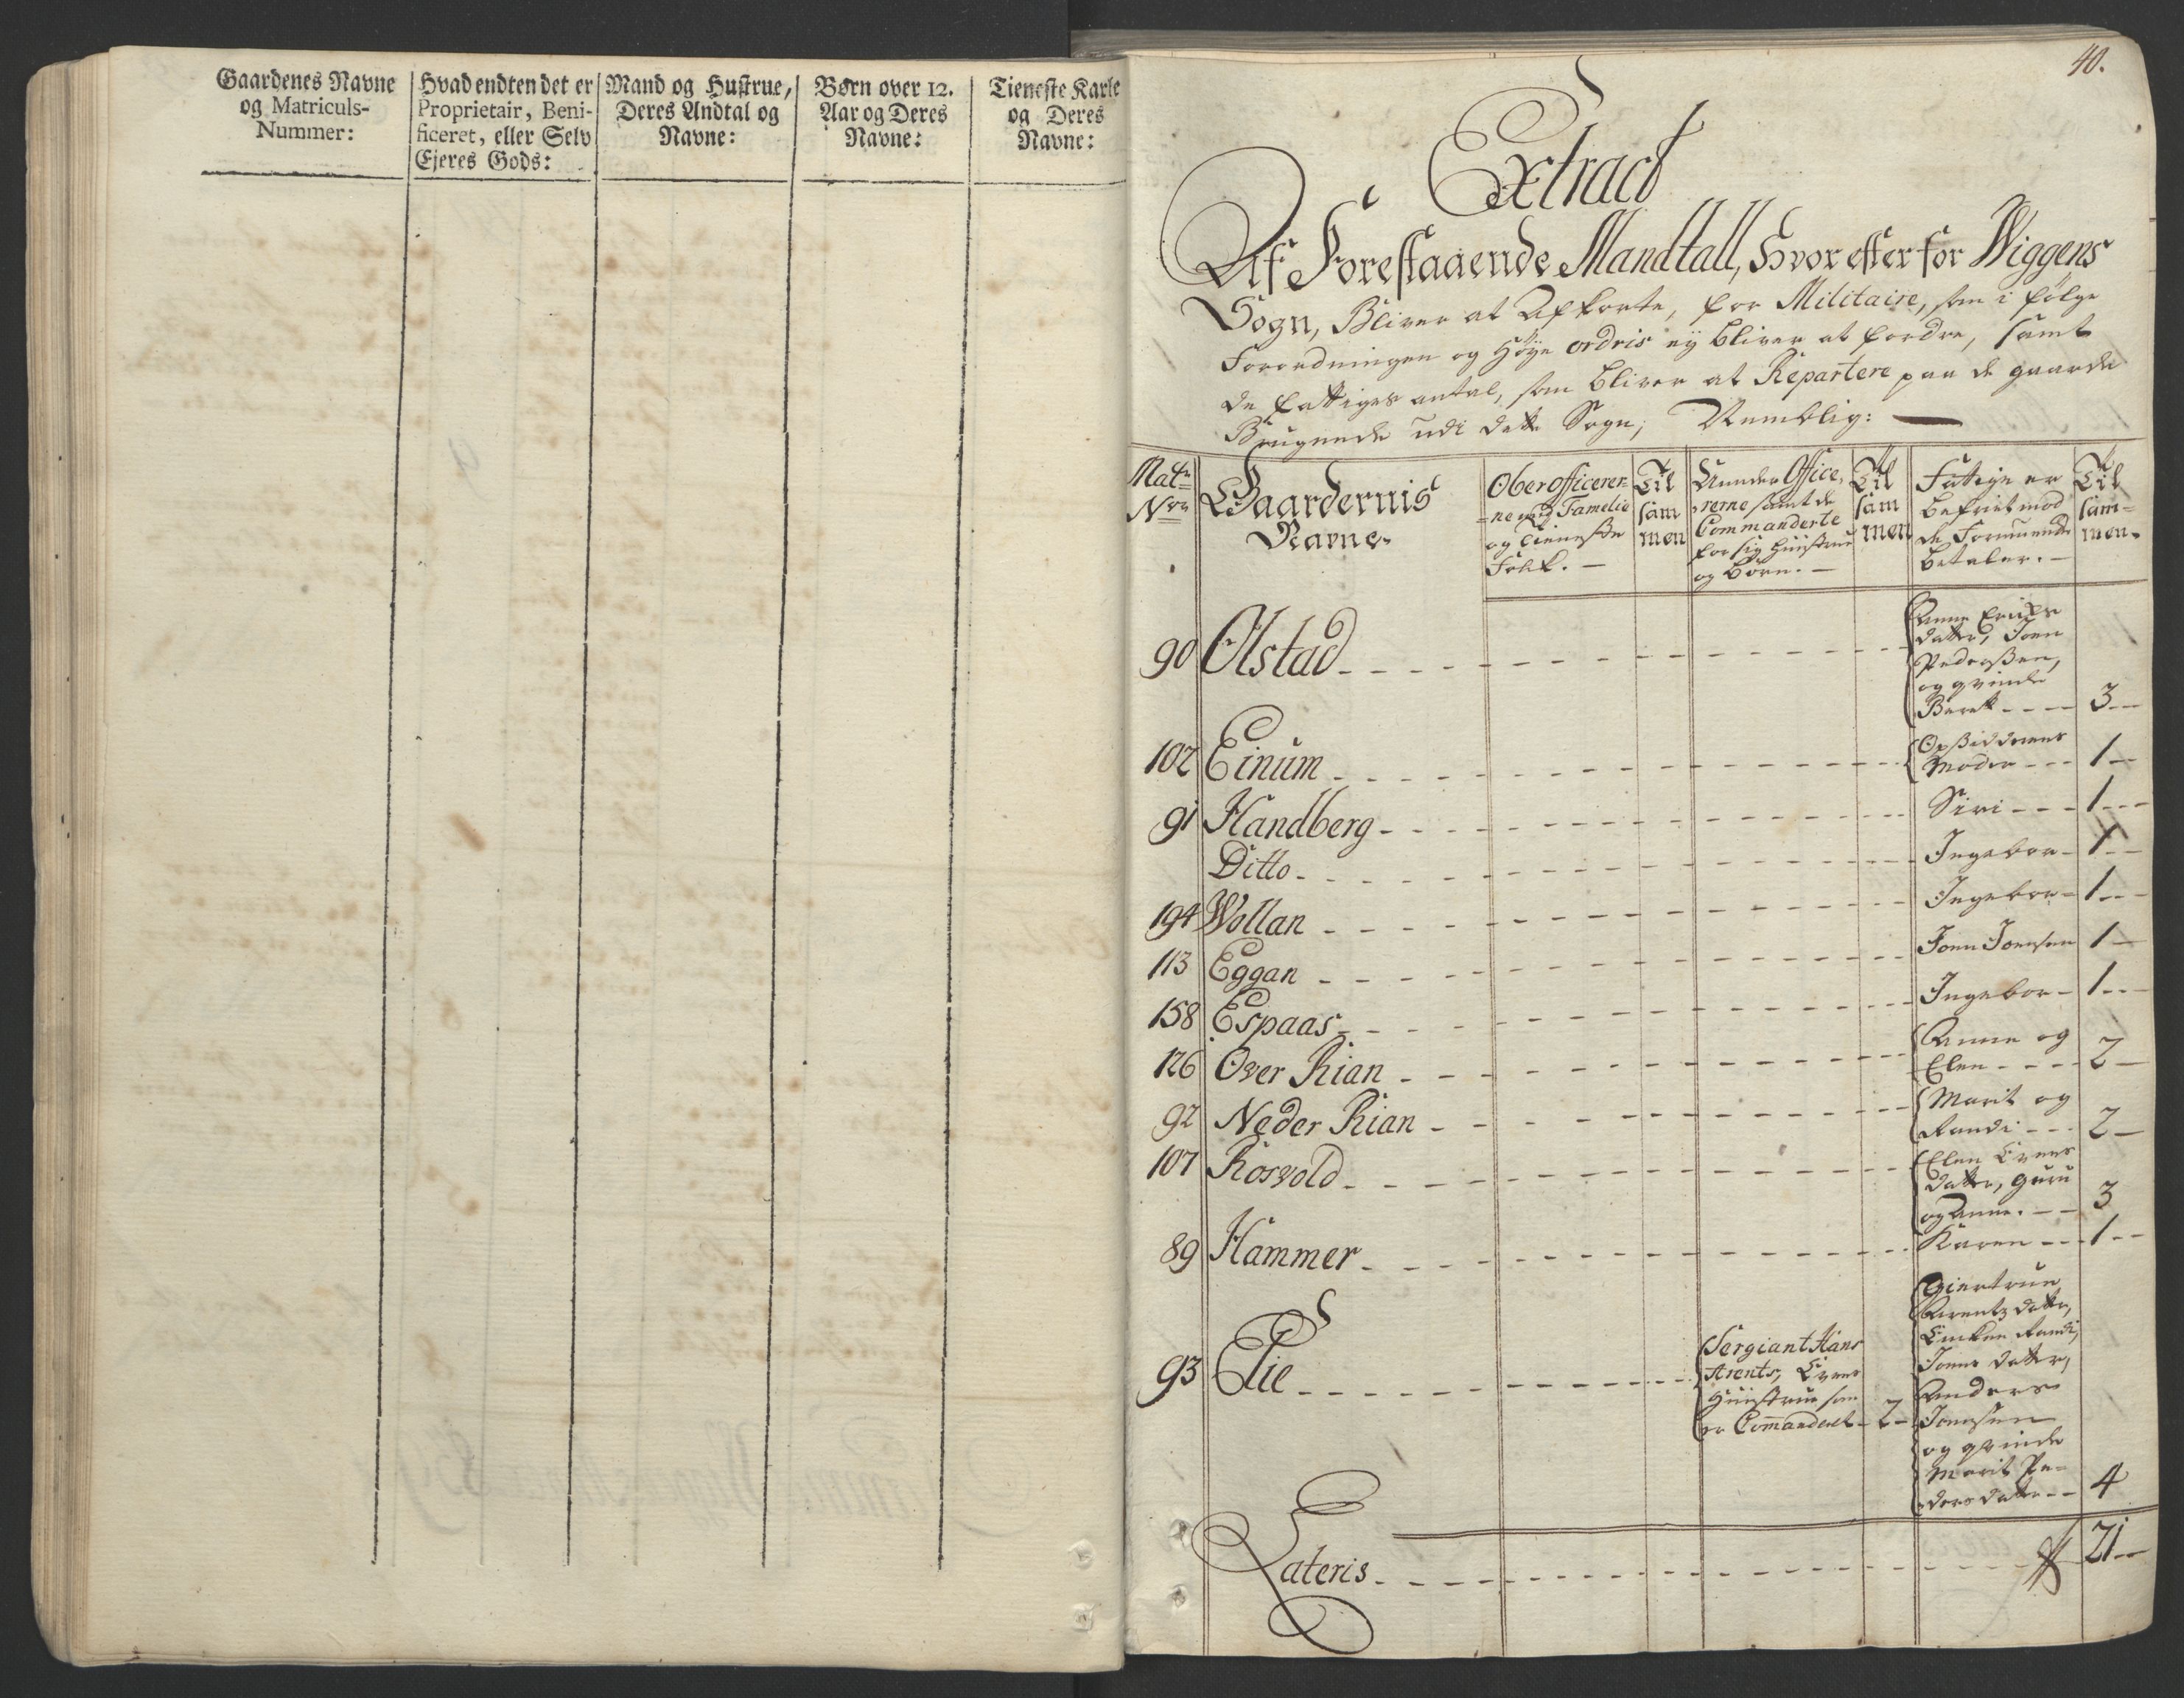 Gaardenes Navne
og Matriculs-
Nummer:
Hvad endten det er
Proprietair, Beni-
ficeret, eller Selv
Ejeres Gods:
Mand og Hustrue,
Deres Andtal og
Navne:
Børn over 12.
Aar og Deres
Navne:
Tieneste Karle
og Deres
Navne:
40.
Extract
Af Forestaaende Mandtall, Hvor efter for Wiggens
Sogn, Bliver at Afkorte, for Militaire, som i følge
Forordningen og Høye ordris ey bliver at fordre, samt
de fattiges antal, som bliver at Repartere paa de gaarde
Brugende udi dette Sogn, Nemblig:
Matr
Nro
Gaardernis
Navne
Ober officerer-
ne med Familie
og tieneste
Folk.
Til
sam
men
Unnder Office-
rerne samt de
Commanderte
for sig Hüustrue
og børn.
Til
sam
men
Fattige er
befriet mod
de Formuende
betaler.
Til
sam-
men.
90 Olstad - - - Anne Erichs
datter, Joen
Pederßen,
og qvinde
Berett - - - 3
102 Einum - - - Opsidderens
Moder - - - 1
91 Handberg - - - Siri - - - 1
Ditto - - - Ingebor - 1
194 Wollan - - - Ingebor - 1
113 Eggan - - - Joen Joensen 1
158 Espaas - - - Ingebor - 1
126 Over Rian - - - Anne og
Elen - - - 2
92 Neder Rian - - - Marit og
Randi - - - 2
107 Rosvold - - - Elen Evens
datter, guru
og Anne. - - 3
89 Hammer - - - Karen - - - 1
93 Elie - - - Sergiant Hans
Arents, Evens
Hüustrue som
er Commandert - 2
Giertrue
Arentz datter,
Enken Randi,
Joens datter,
Anders
Joensen
og qvinde
Marit Pe-
dersdatter - - 4
Lateris - - - 21